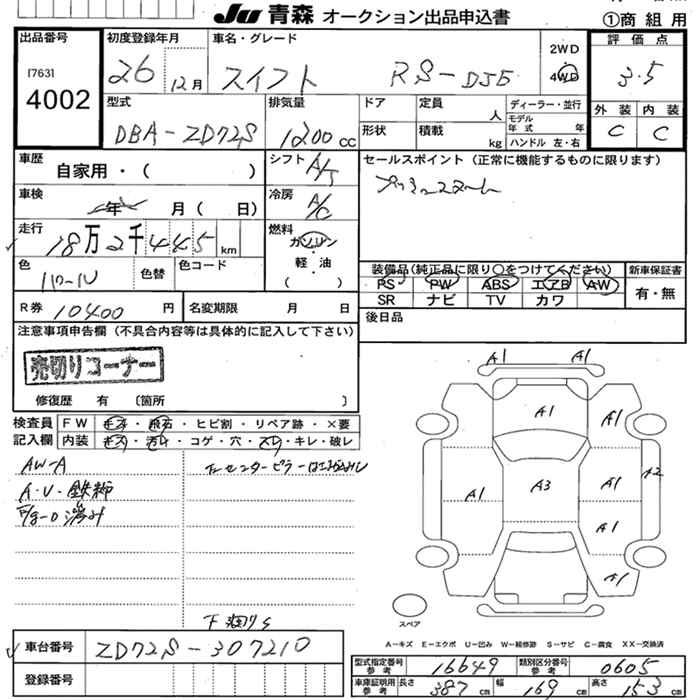 JU 青森 オークション出品申込書
①商組用
出品番号
17631
4002
初度登録年月
26 12月
車名・グレード
スイフト RS-DJE
2WD
4WD
評価点
3.5
型式
DBA-ZD72S
排気量
1200 cc
ドア
定員
人
形状
積載
kg
ディーラー・並行
モデル
年式 年
ハンドル 左・右
外装
内装
C
C
車歴
自家用・( )
シフト
A/T
セールスポイント (正常に機能するものに限ります)
プッシュスタート
車検
年 月( 日)
冷房
A/C
走行
18万2千445 km
燃料
ガソリン
軽・油
( )
色
色替
色コード
装備品(純正品に限り○をつけてください)
新車保証書
PS PW ABS エアB AW
SR ナビ TV カワ
有・無
R券
10400 円
名変期限 月 日
後日品
注意事項申告欄 (不具合内容等は具体的に記入して下さい)
売切りコーナー
修復歴 有 〔箇所 〕
検査員
記入欄
FW キズ・飛石・ヒビ割・リペア跡・×要
内装 キズ・汚レ・コゲ・穴・スレ・キレ・破レ
AW-A
A・U・鉄錆
下廻りS
A1 A1
A1 A1
A1 A3 A1 A2
A1
A1
スペア
A-キズ E-エクボ U-凹み W-補修跡 S-サビ C-腐食 XX-交換済
車台番号
ZD72S-307210
登録番号
型式指定番号
参考
16649
類別区分番号
参考
0605
車庫証明用
参考
長さ 387 cm 幅 169 cm 高さ 153 cm